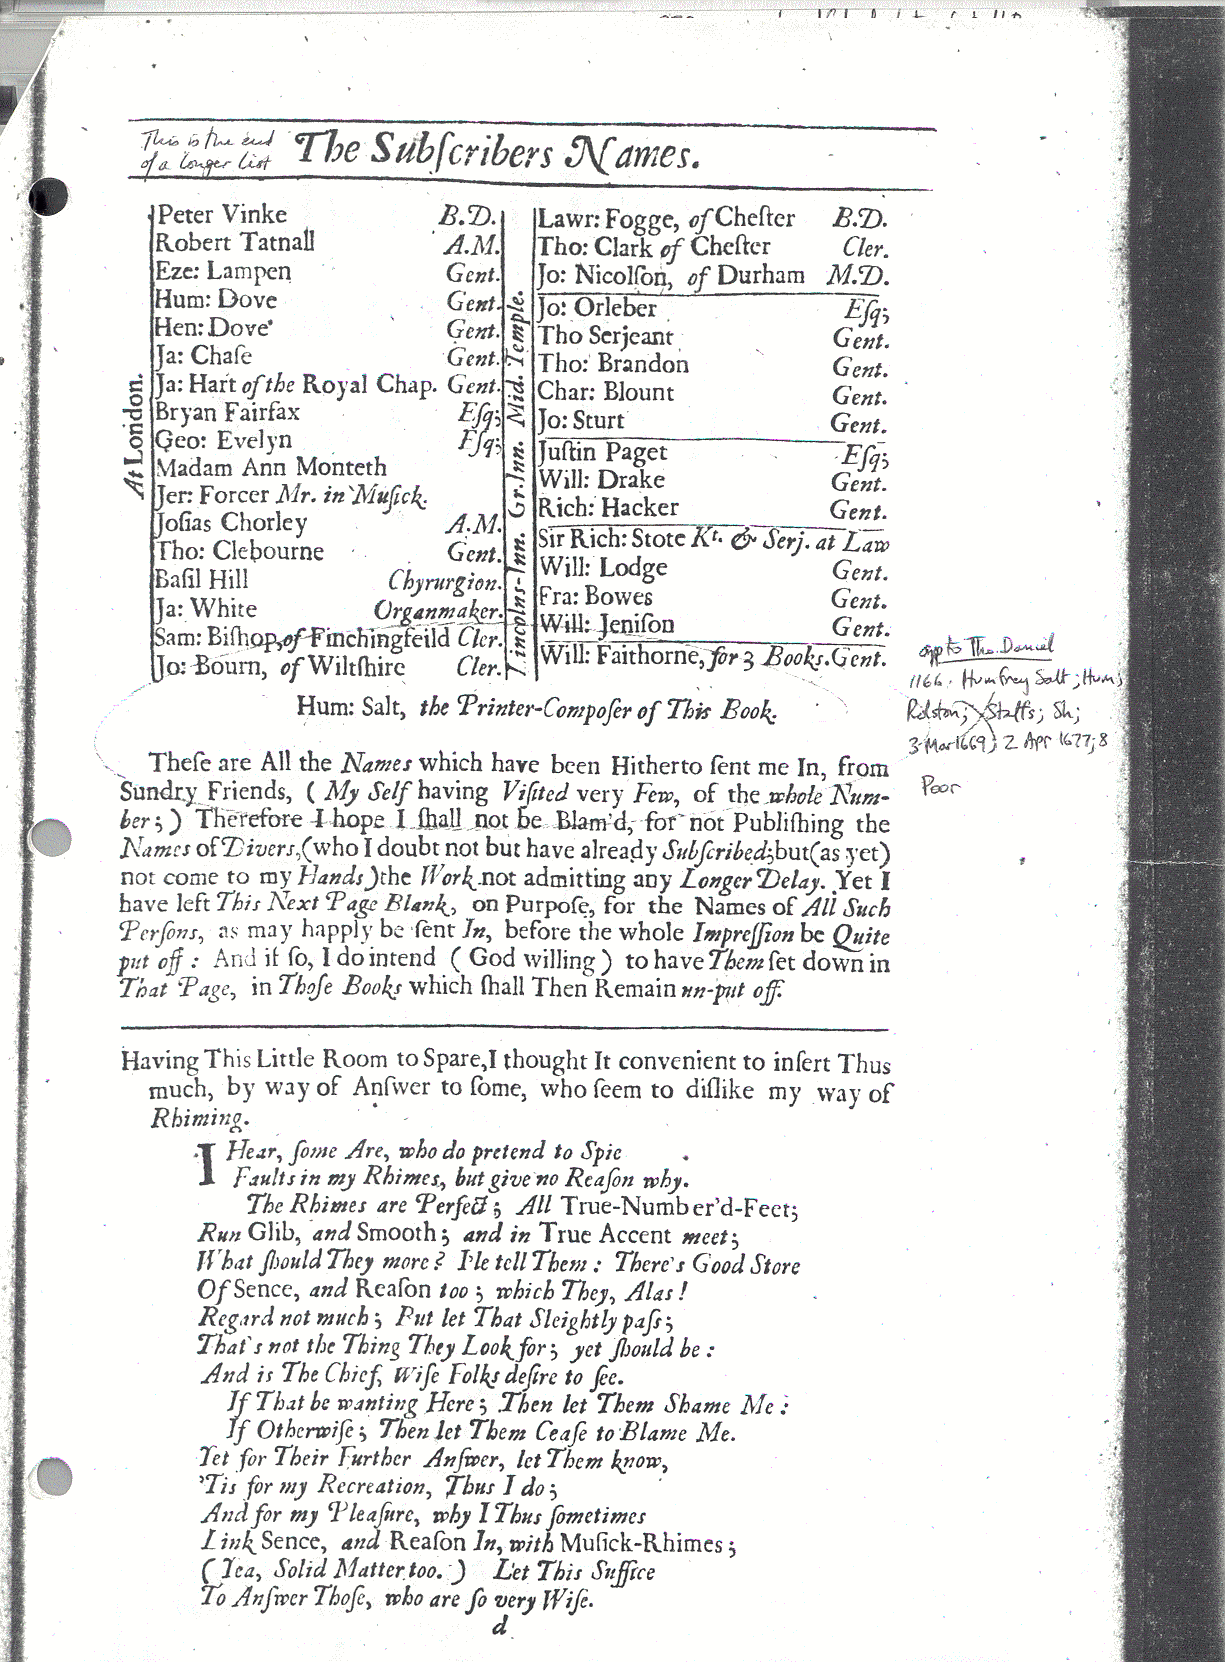 This is the end
of a longer list
The Subſcribers Names.
At London.
Peter Vinke B.D.
Robert Tatnall A.M.
Eze: Lampen Gent.
Hum: Dove Gent.
Hen: Dove Gent.
Ja: Chaſe Gent.
Ja: Hart of the Royal Chap. Gent.
Bryan Fairfax Eſq;
Geo: Evelyn Eſq;
Madam Ann Monteth
Jer: Forcer Mr. in Muſick.
Joſias Chorley A.M.
Tho: Clebourne Gent.
Baſil Hill Chyrurgion.
Ja: White Organmaker.
Sam: Biſhop, of Finchingfeild Cler.
Jo: Bourn, of Wiltſhire Cler.
Lawr: Fogge, of Cheſter B.D.
Tho: Clark of Cheſter Cler.
Jo: Nicolſon, of Durham M.D.
Mid. Temple.
Jo: Orleber Eſq;
Tho Serjeant Gent.
Tho: Brandon Gent.
Char: Blount Gent.
Jo: Sturt Gent.
Gr. Inn.
Juſtin Paget Eſq;
Will: Drake Gent.
Rich: Hacker Gent.
Lincolns-Inn.
Sir Rich: Stote Kt. & Serj. at Law
Will: Lodge Gent.
Fra: Bowes Gent.
Will: Jeniſon Gent.
Will: Faithorne, for 3 Books. Gent.
Hum: Salt, the Printer-Compoſer of This Book.
app to Tho. Daniel
1166. Humfrey Salt; Hum;
Rolston; Staffs; Sh;
3 Mar 1669; 2 Apr 1677; 8
Poor
Theſe are All the Names which have been Hitherto ſent me In, from
Sundry Friends, ( My Self having Viſited very Few, of the whole Num-
ber; ) Therefore I hope I ſhall not be Blam'd, for not Publiſhing the
Names of Divers, (who I doubt not but have already Subſcribed; but (as yet)
not come to my Hands) the Work not admitting any Longer Delay. Yet I
have left This Next Page Blank, on Purpoſe, for the Names of All Such
Perſons, as may happly be ſent In, before the whole Impreſſion be Quite
put off: And if ſo, I do intend ( God willing ) to have Them ſet down in
That Page, in Thoſe Books which ſhall Then Remain un-put off.
Having This Little Room to Spare, I thought It convenient to inſert Thus
much, by way of Anſwer to ſome, who ſeem to diſlike my way of
Rhiming.
I Hear, ſome Are, who do pretend to Spie
Faults in my Rhimes, but give no Reaſon why.
The Rhimes are Perfect; All True-Number'd-Feet;
Run Glib, and Smooth; and in True Accent meet;
What ſhould They more? I'le tell Them: There's Good Store
Of Sence, and Reaſon too; which They, Alas!
Regard not much; But let That Sleightly paſs;
That's not the Thing They Look for; yet ſhould be:
And is The Chief, Wiſe Folks deſire to ſee.
If That be wanting Here; Then let Them Shame Me:
If Otherwiſe; Then let Them Ceaſe to Blame Me.
Yet for Their Further Anſwer, let Them know,
'Tis for my Recreation, Thus I do;
And for my Pleaſure, why I Thus ſometimes
Link Sence, and Reaſon In, with Muſick-Rhimes;
( Yea, Solid Matter too. ) Let This Suffice
To Anſwer Thoſe, who are ſo very Wiſe.
d